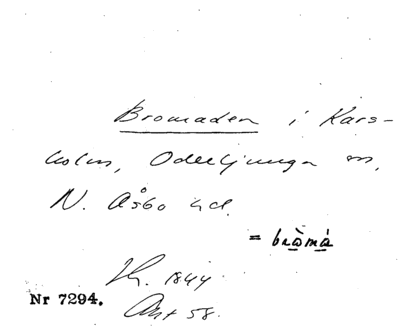 Bromaden i Kars-
holm, Oderljunga sn,
N. Åsbo hd.
= bròmá
1844
Nr 7294.
58.